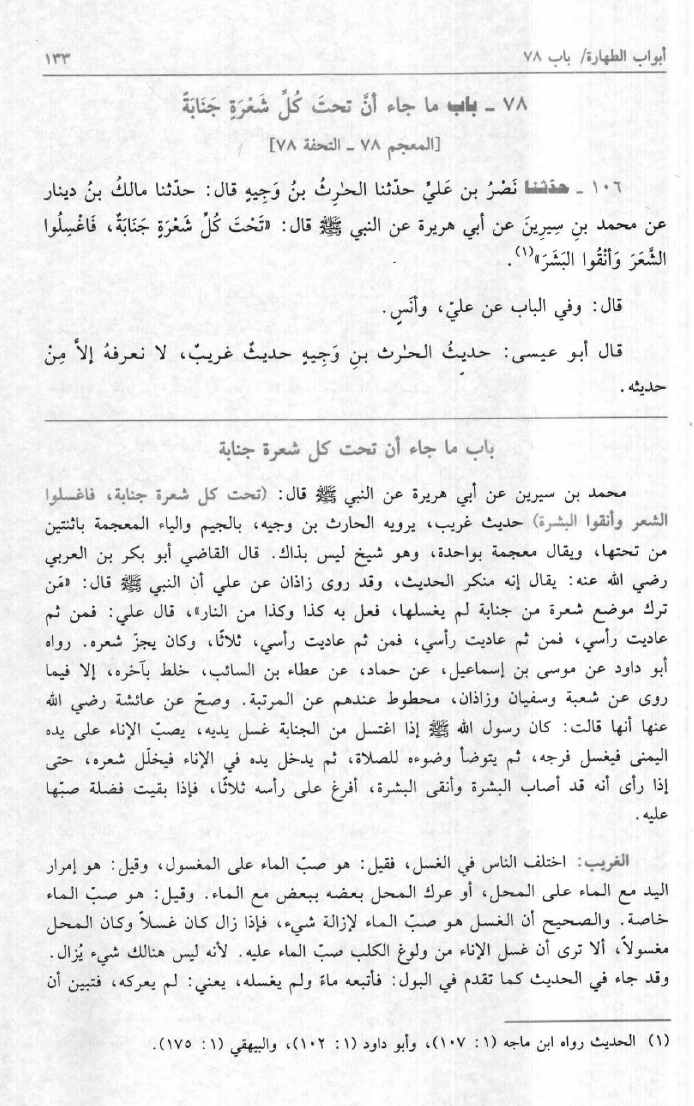 أبواب الطهارة/ باب ٧٨
١٣٣
٧٨ ـ باب ما جاء أنَّ تحتَ كُلِّ شَعْرَةٍ جَنَابَةً
[المعجم ٧٨ ـ التحفة ٧٨]
١٠٦ ـ حدّثنا نَصْرُ بن عَليِّ حدّثنا الحٰرِثُ بنُ وَجِيهٍ قال: حدّثنا مالكُ بنُ دينار
عن محمد بنِ سِيرِينَ عن أبي هريرة عن النبي ﷺ قال: «تَحْتَ كُلِّ شَعْرَةٍ جَنَابَةٌ، فَاغْسِلُوا
الشَّعَرَ وَأَنْقُوا البَشَرَ»(١).
قال: وفي الباب عن عليّ، وأنَسٍ.
قال أبو عيسى: حديثُ الحٰرث بنِ وَجِيهٍ حديثٌ غريبٌ، لا نعرفهُ إلاَّ مِنْ
حديثه.
باب ما جاء أن تحت كل شعرة جنابة
محمد بن سيرين عن أبي هريرة عن النبي ﷺ قال: (تحت كل شعرة جنابة، فاغسلوا
الشعر وأنقوا البشرة) حديث غريب، يرويه الحارث بن وجيه، بالجيم والياء المعجمة باثنتين
من تحتها، ويقال معجمة بواحدة، وهو شيخ ليس بذاك. قال القاضي أبو بكر بن العربي
رضي الله عنه: يقال إنه منكر الحديث، وقد روى زاذان عن علي أن النبي ﷺ قال: «مَن
ترك موضع شعرة من جنابة لم يغسلها، فعل به كذا وكذا من النار»، قال علي: فمن ثم
عاديت رأسي، فمن ثم عاديت رأسي، فمن ثم عاديت رأسي، ثلاثًا، وكان يجزّ شعره. رواه
أبو داود عن موسى بن إسماعيل، عن حماد، عن عطاء بن السائب، خلط بآخره، إلا فيما
روى عن شعبة وسفيان وزاذان، محطوط عندهم عن المرتبة. وصحّ عن عائشة رضي الله
عنها أنها قالت: كان رسول الله ﷺ إذا اغتسل من الجنابة غسل يديه، يصبّ الإناء على يده
اليمنى فيغسل فرجه، ثم يتوضأ وضوءه للصلاة، ثم يدخل يده في الإناء فيخلّل شعره، حتى
إذا رأى أنه قد أصاب البشرة وأنقى البشرة، أفرغ على رأسه ثلاثًا، فإذا بقيت فضلة صبّها
عليه.
الغريب: اختلف الناس في الغسل، فقيل: هو صبّ الماء على المغسول، وقيل: هو إمرار
اليد مع الماء على المحل، أو عرك المحل بعضه ببعض مع الماء. وقيل: هو صبّ الماء
خاصة. والصحيح أن الغسل هو صبّ الماء لإزالة شيء، فإذا زال كان غسلاً وكان المحل
مغسولاً، ألا ترى أن غسل الإناء من ولوغ الكلب صبّ الماء عليه. لأنه ليس هنالك شيء يُزال.
وقد جاء في الحديث كما تقدم في البول: فأتبعه ماءً ولم يغسله، يعني: لم يعركه، فتبين أن
(١) الحديث رواه ابن ماجه (١: ١٠٧)، وأبو داود (١: ١٠٢)، والبيهقي (١: ١٧٥).